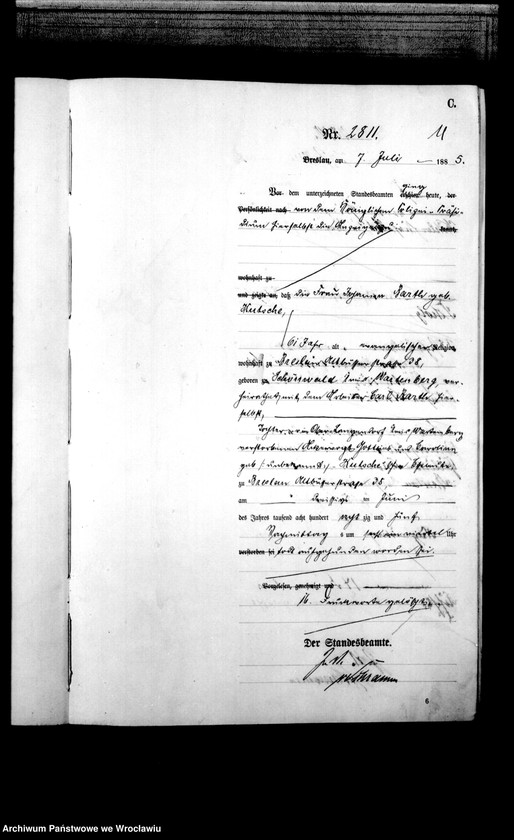 C.
Nr. 2811. M
Breslau, am 7. Juli 1885.
Vor dem unterzeichneten Standesbeamten erschien ging heute, der
Persönlichkeit nach von dem Königlichen Polizei-Präsi-
dium hierselbst die Anzeige kannt,
wohnhaft zu
und zeigte an, daß die Frau Johanna Barth geb.
Kutsche,
61 Jahr alt, evangelischer Religion
wohnhaft zu Breslau Altbüßerstraße 38,
geboren zu Schönwald Kreis Wartenberg ver-
heirathet mit dem Arbeiter Carl Barth hier-
selbst,
Tochter der in Kreis Wartenberg
verstorbenen Gottlieb und Caroline
geb. unbekannt, Kutsche'schen Eheleute
zu Breslau Altbüßerstraße 38,
am dreißigsten Juni
des Jahres tausend acht hundert achtzig und fünf
Nachmittag s um Uhr
verstorben sei todt aufgefunden worden sei.
Vorgelesen, genehmigt und
16 Druckworte gelöscht.
Der Standesbeamte.
6
Archiwum Państwowe we Wrocławiu